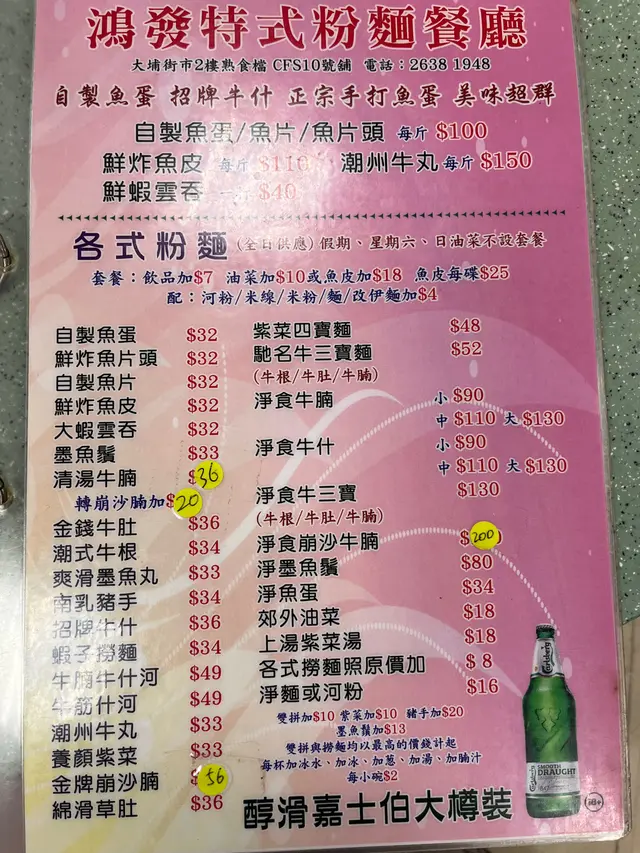 鴻發特式粉麵餐廳
大埔街市2樓熟食檔 CFS10號舖 電話：2638 1948
自製魚蛋 招牌牛什 正宗手打魚蛋 美味超群
自製魚蛋/魚片/魚片頭 每斤 $100
鮮炸魚皮 每斤 $110 潮州牛丸 每斤 $150
鮮蝦雲吞 $40
各式粉麵 (全日供應) 假期、星期六、日油菜不設套餐
套餐：飲品加$7 油菜加$10或魚皮加$18 魚皮每碟$25
配：河粉/米線/米粉/麵/改伊麵加$4
自製魚蛋 $32
鮮炸魚片頭 $32
自製魚片 $32
鮮炸魚皮 $32
大蝦雲吞 $32
墨魚鬚 $33
清湯牛腩 $36
轉崩沙腩加$20
金錢牛肚 $36
潮式牛根 $34
爽滑墨魚丸 $33
南乳豬手 $34
招牌牛什 $36
蝦子撈麵 $34
牛腩牛什河 $49
牛筋什河 $49
潮州牛丸 $33
養顏紫菜 $33
金牌崩沙腩 56
綿滑草肚 $36
紫菜四寶麵 $48
馳名牛三寶麵 $52
(牛根/牛肚/牛腩)
淨食牛腩 小 $90
中 $110 大 $130
淨食牛什 小 $90
中 $110 大 $130
淨食牛三寶 $130
(牛根/牛肚/牛腩)
淨食崩沙牛腩 $200
淨墨魚鬚 $80
淨魚蛋 $34
郊外油菜 $18
上湯紫菜湯 $18
各式撈麵照原價加 $ 8
淨麵或河粉 $16
雙拼加$10 紫菜加$10 豬手加$20
墨魚鬚加$13
雙拼與撈麵均以最高的價錢計起
每杯加冰水、加冰、加葱、加湯、加腩汁
每小碗$2
醇滑嘉士伯大樽裝
Carlsberg
SMOOTH
DRAUGHT
18+